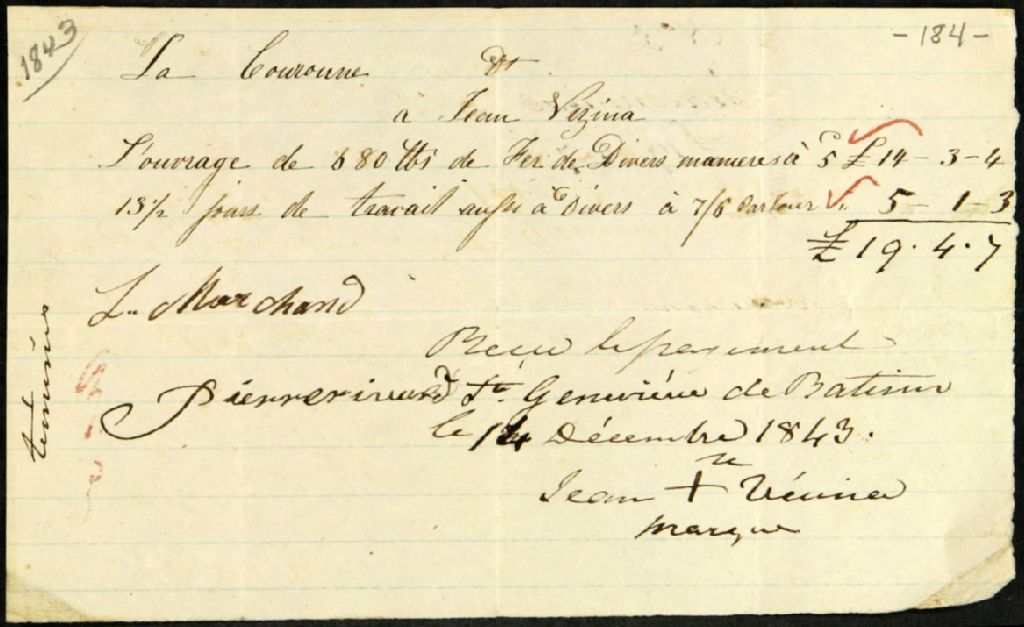 1843
- 184 -
La Couronne Dt
à Jean Vezina
L'ouvrage de 680 lbs de Fer de Divers manieres à 5 £ 14 - 3 - 4
13½ jours de travail aussi à Divers à 7/6 Par Jour 5 - 1 - 3
£ 19 . 4 . 7
L. Marchand
Recu le payement
Pierre rivard Ste Genevieve de Batiscan
le 14 Décembre 1843.
Jean + Vézina
marque
temoins